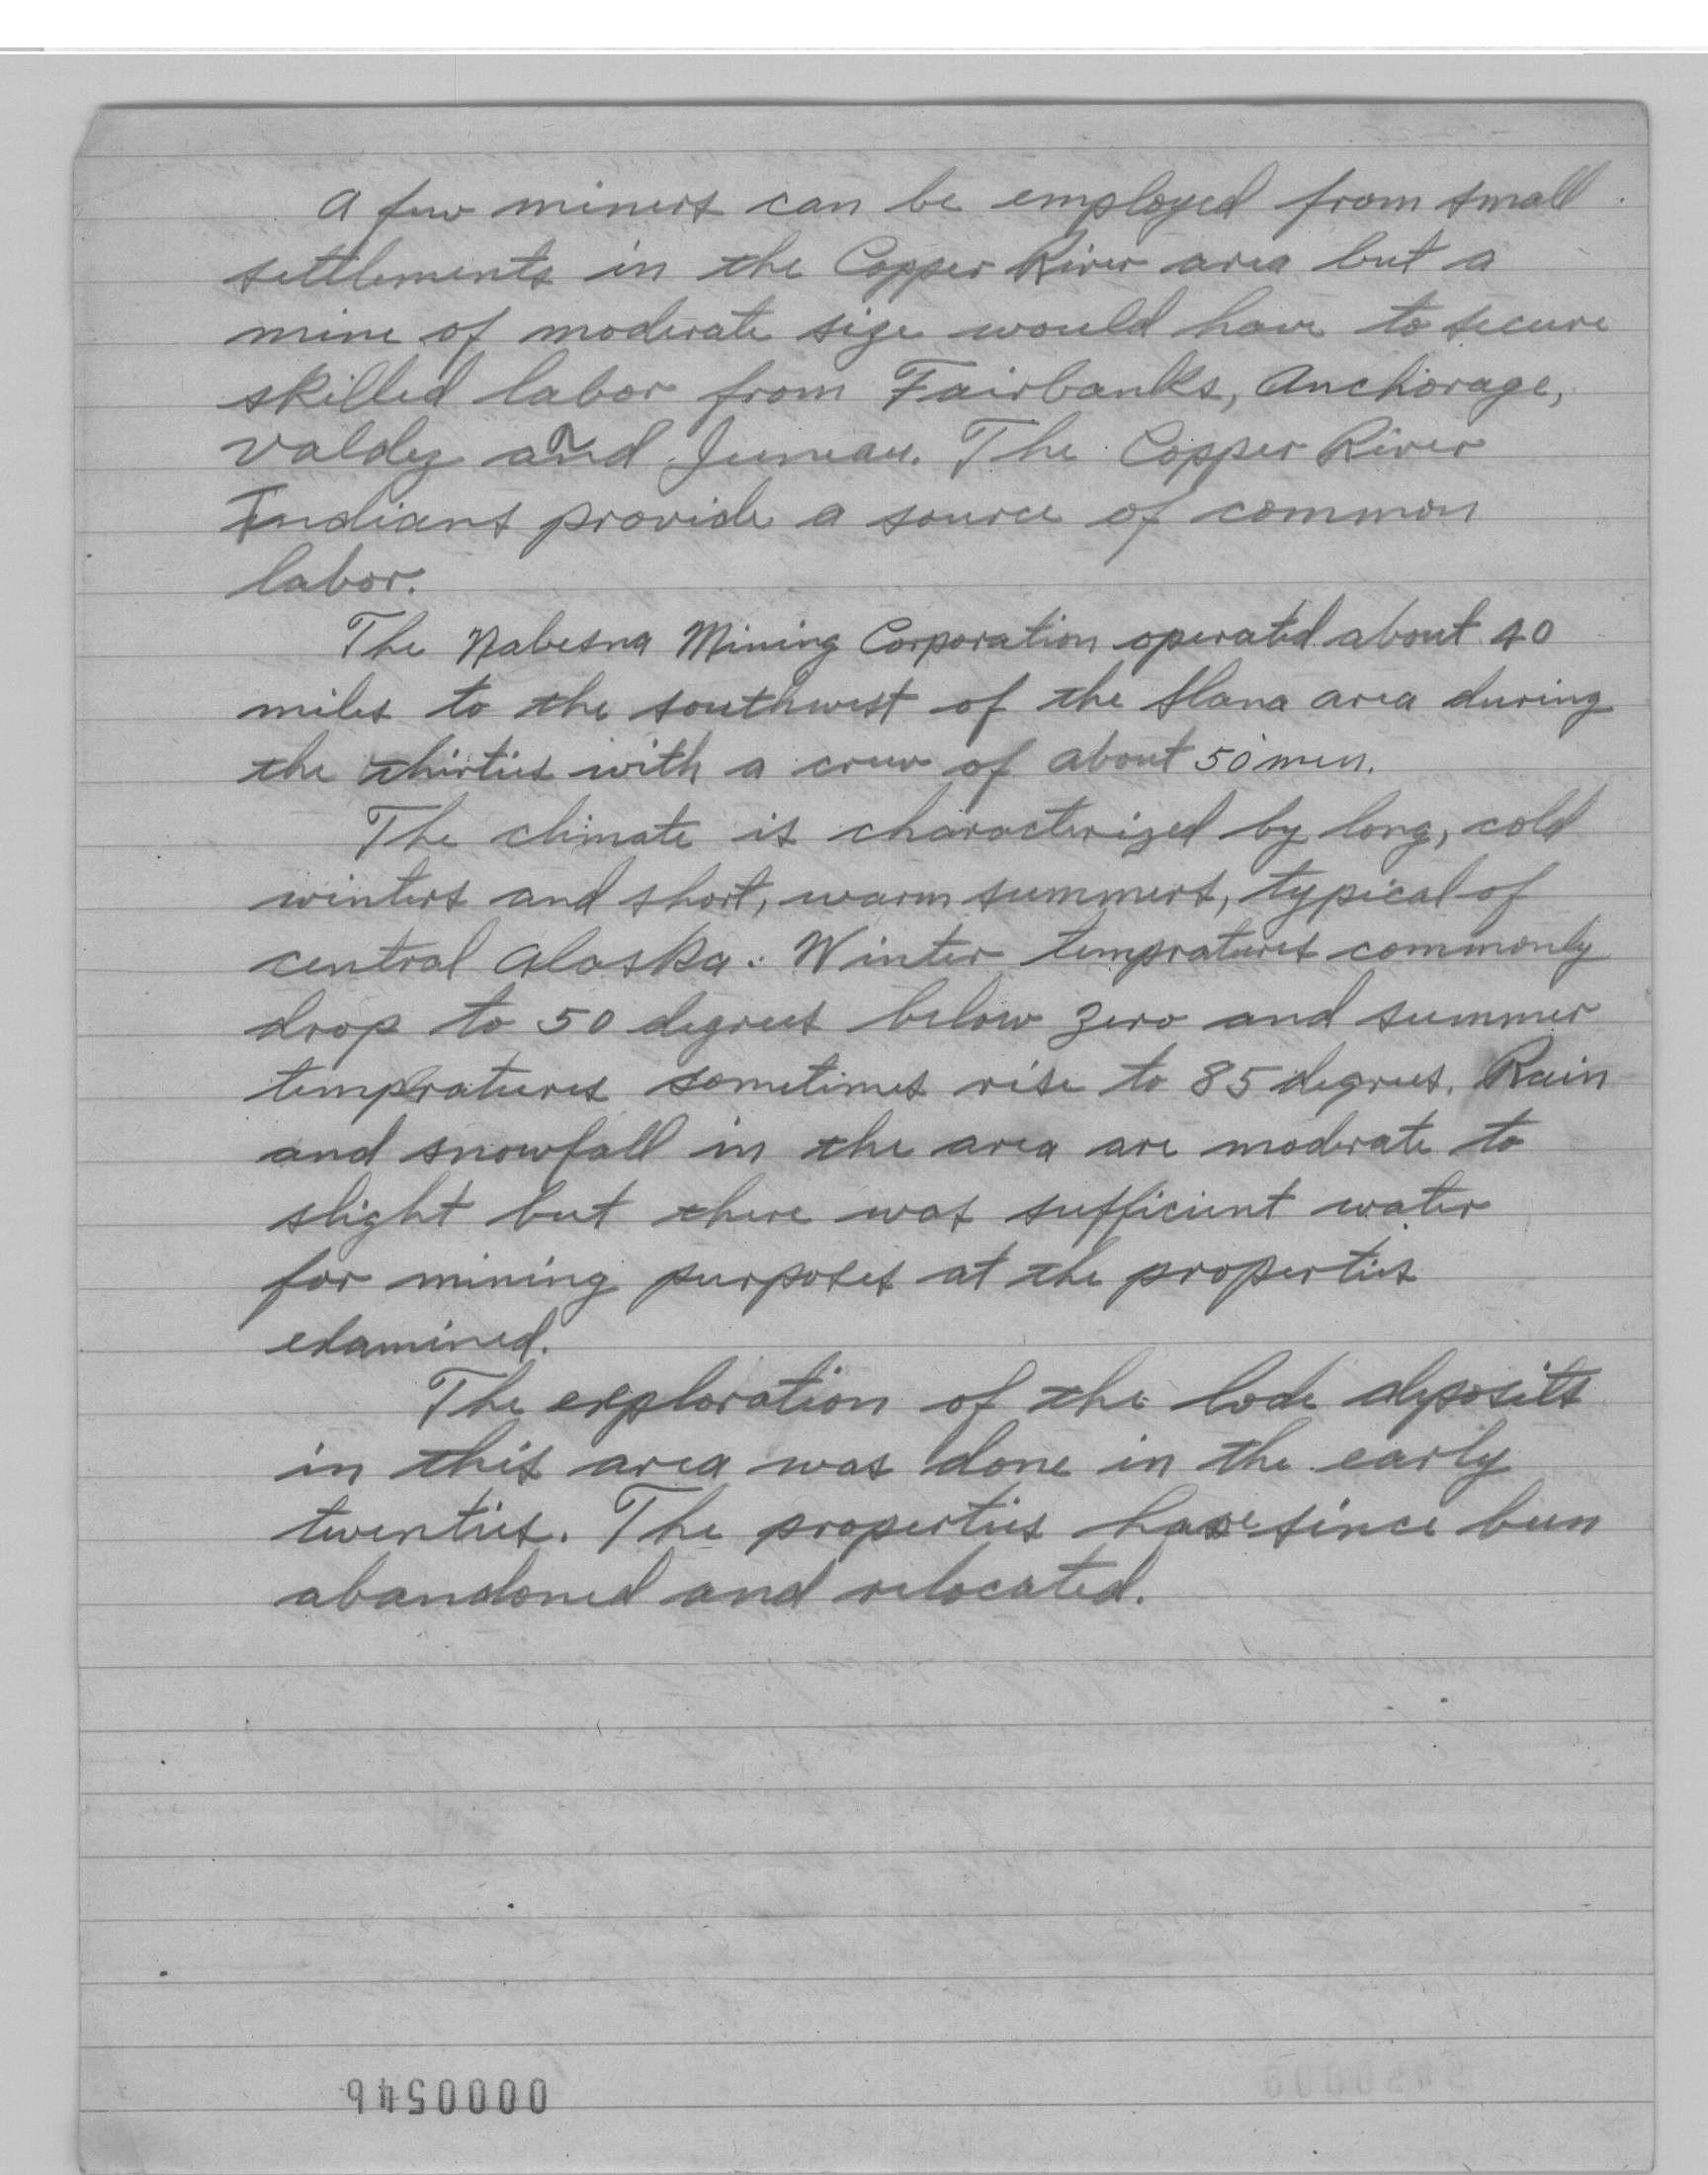 A few miners can be employed from small
settlements in the Copper River area but a
mine of moderate size would have to secure
skilled labor from Fairbanks, Anchorage,
Valdez and Juneau. The Copper River
Indians provide a source of common
labor.
The Nabesna Mining Corporation operated about 40
miles to the southwest of the Slana area during
the thirties with a crew of about 50 men.
The climate is characterized by long, cold
winters and short, warm summers, typical of
central Alaska. Winter tempratures commonly
drop to 50 degrees below zero and summer
tempratures sometimes rise to 85 degrees. Rain
and snowfall in the area are moderate to
slight but there was sufficient water
for mining purposes at the properties
examined.
The exploration of the lode deposits
in this area was done in the early
twenties. The properties have since been
abandoned and relocated.
0000546